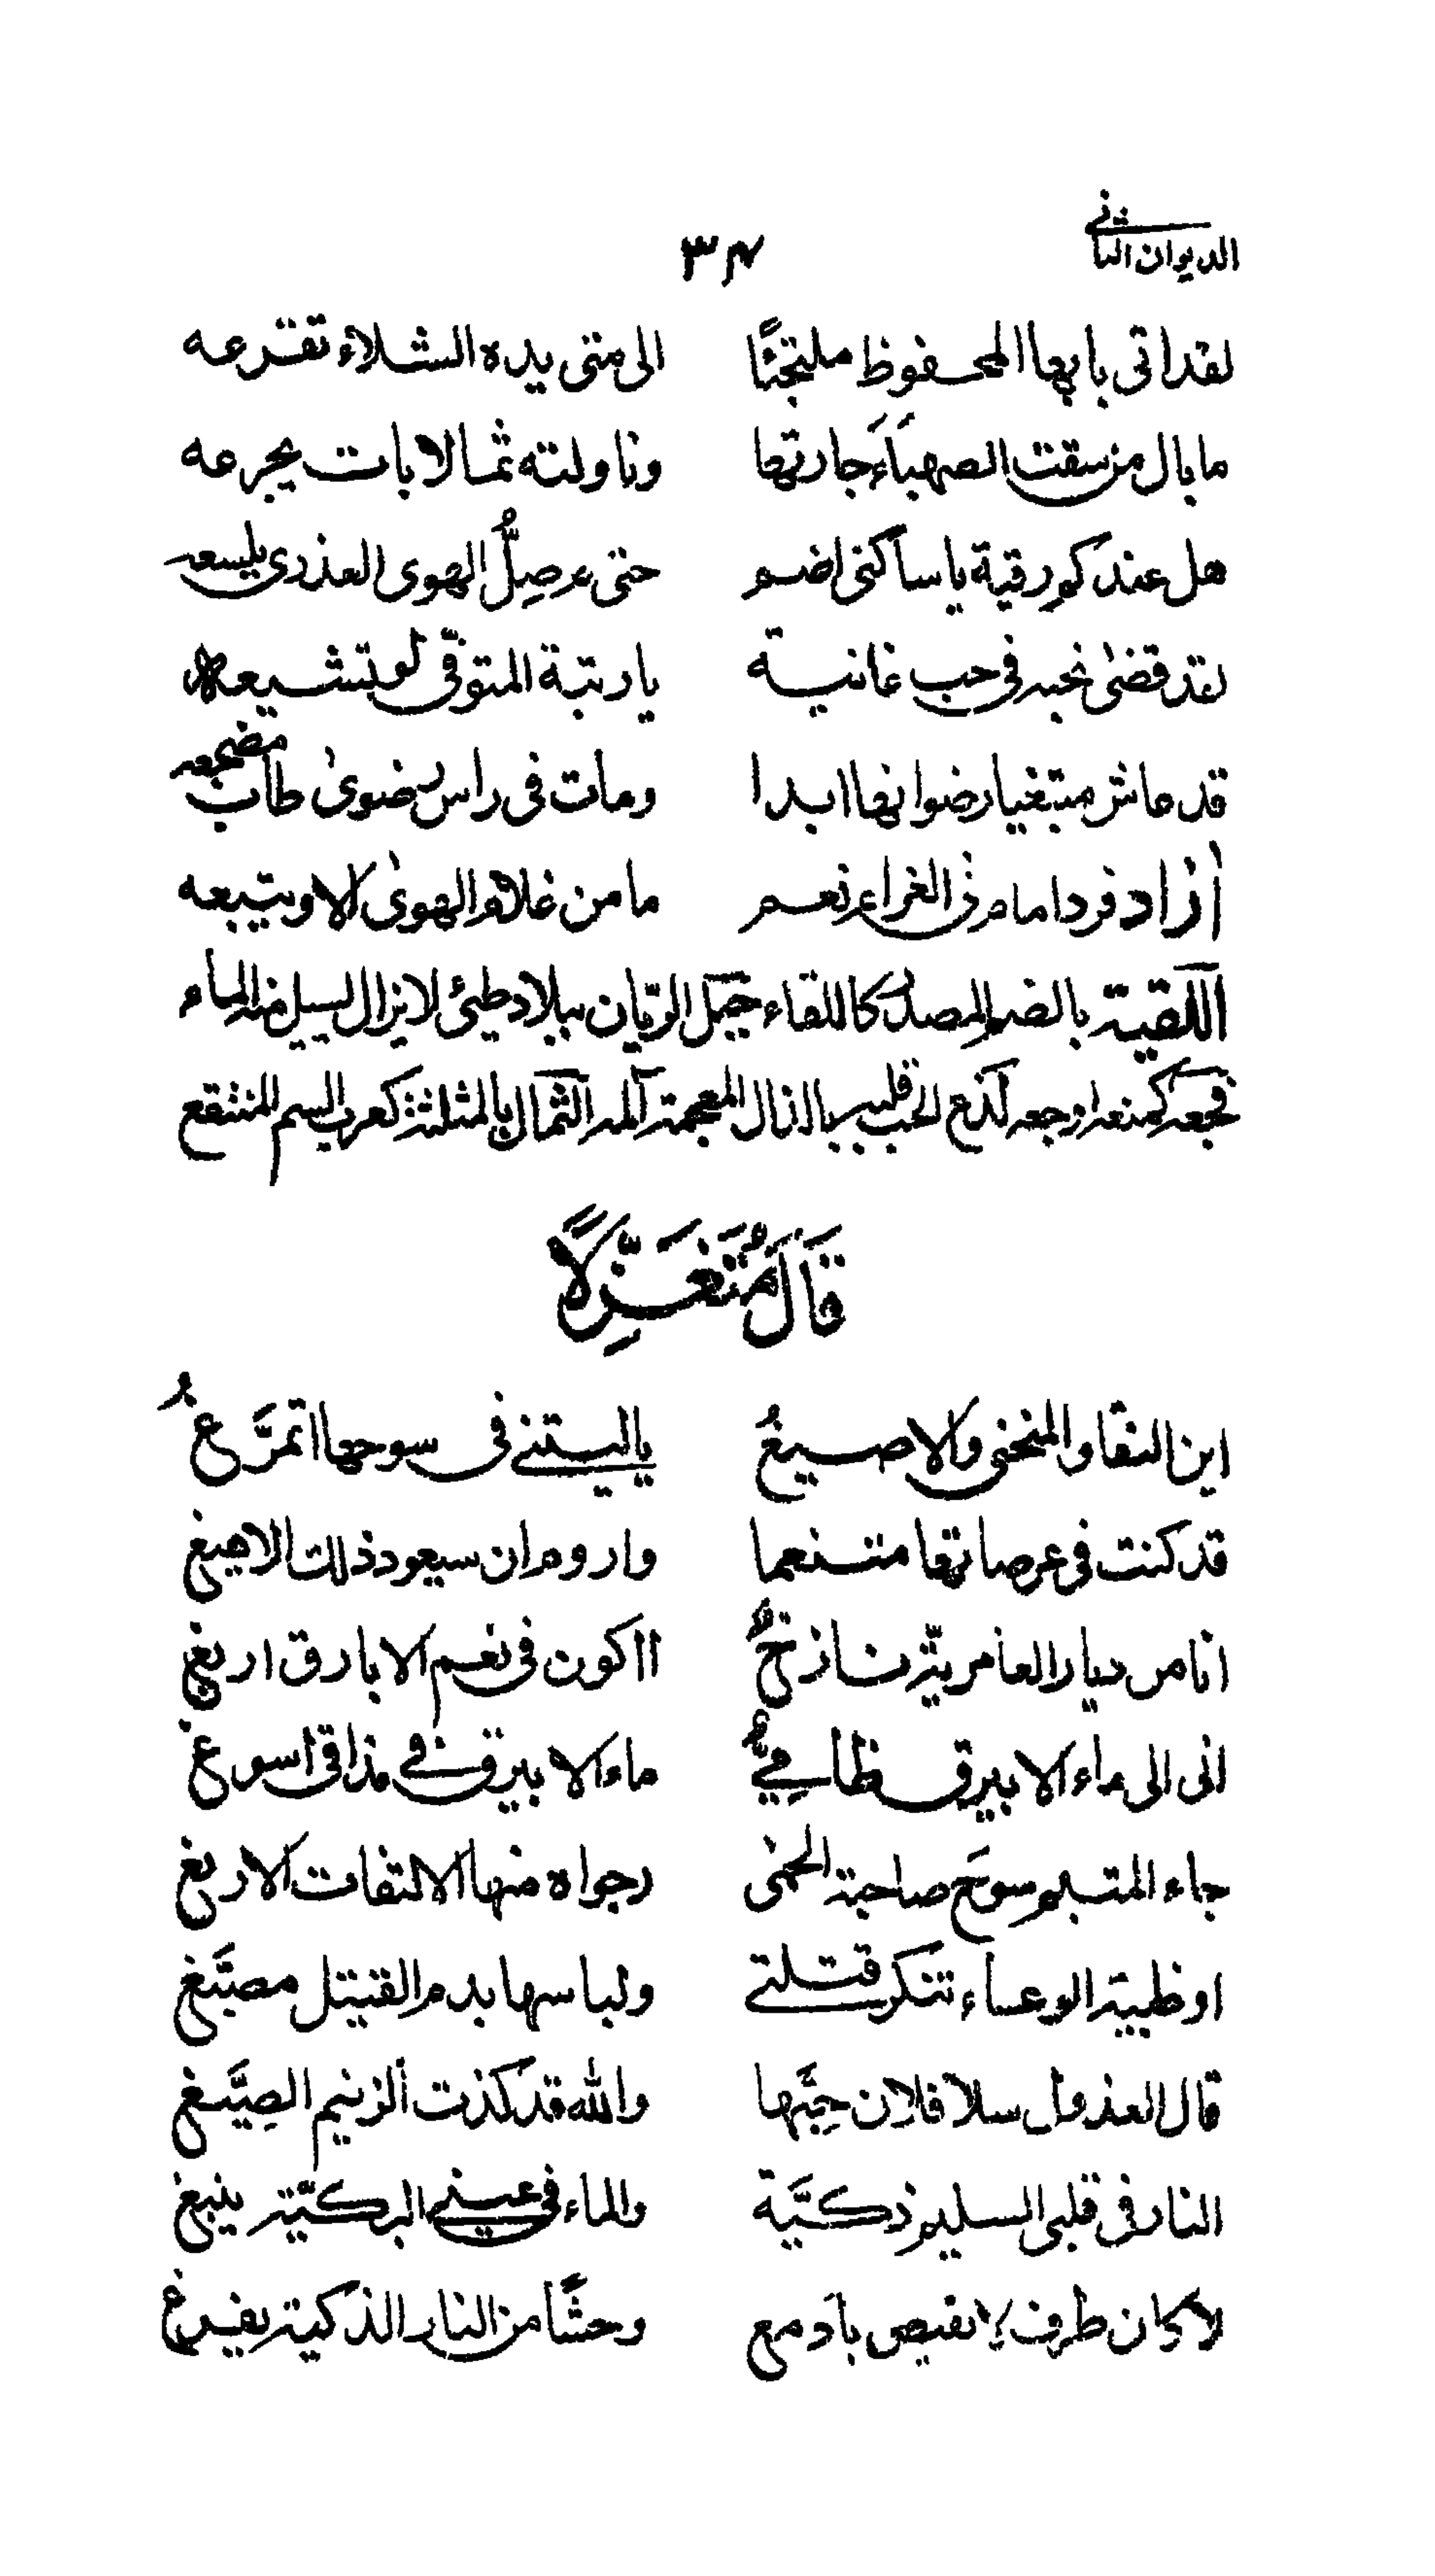 الديوان الثاني ٣٤
لقد اتى بابها المحفوظ ملتجئًا الى متى يده الشلاء تقرعه
ما بال من سقت الصهباءَ جارتها وناولته ثمالا بات يجرعه
هل عندكم رقية يا ساكنى اضم حتى م صِلُّ الهوى العذرى يلسعه
لقد قضى نحبه فى حب غانية يا رتبة المتوفّى لو تشيعه
قد عاش مبتغيا رضوانها ابدا ومات فى راس رضوى طاب مضجعه
أزاد فرد امام فى الغرام نعم ما من غلام الهوى الا ويتبعه
اللقية بالضم المصدر كاللقاء جبل الريّان ببلاد طيئ لا يزال يسيل منه الماء
فجعه كمنعه اوجعه لذع الحب قلبه بالذال المعجمة آلمه الثمال بالمثلثة كغراب السم المنقع
قَالَ مُتَغَزِّلًا
اين النقا والمنحنى والاصيغُ يا ليتنى فى سوحها اتمرَّغُ
قد كنت فى عرصاتها متنعما واروم ان سيعود ذلك الاهيغ
انا من ديار العامريّة نازحٌ أاكون فى نعم الابارق اربغ
انى الى ماء الابيرق ظامِيٌّ ماء الابيرق فى مذاقى اسوغ
جاء المتيم سوحَ صاحبة الحمى رجواه منها الالتفات الاربغ
او ظبية الوعساء تنكر قتلتى ولباسها بدم القتيل مصبَّغ
قال العذول سلا فلان حِبَّها والله قد كذت الزنيم الصِيَّغ
النار فى قلبى السليم ذكيَّة والماء فى عينى البكيّة ينبغ
لا كان طرف لا يفيض بادمع وحشًا من النار الذكية يفرغ